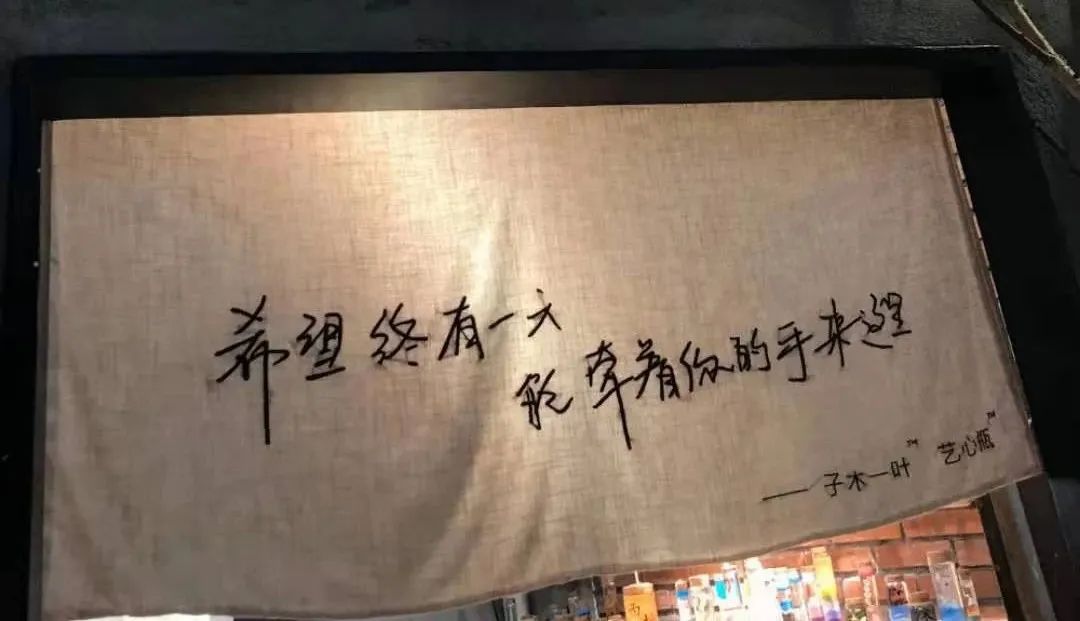 希望终有一天
能牵着你的手来这里
——子木一叶™ 艺心瓶™